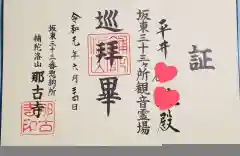 証
平井
殿
坂東三十三ヶ所観音霊場
巡拝畢
令和元年六月三十日
坂東三十三番惣納所
補陀洛山 那古寺